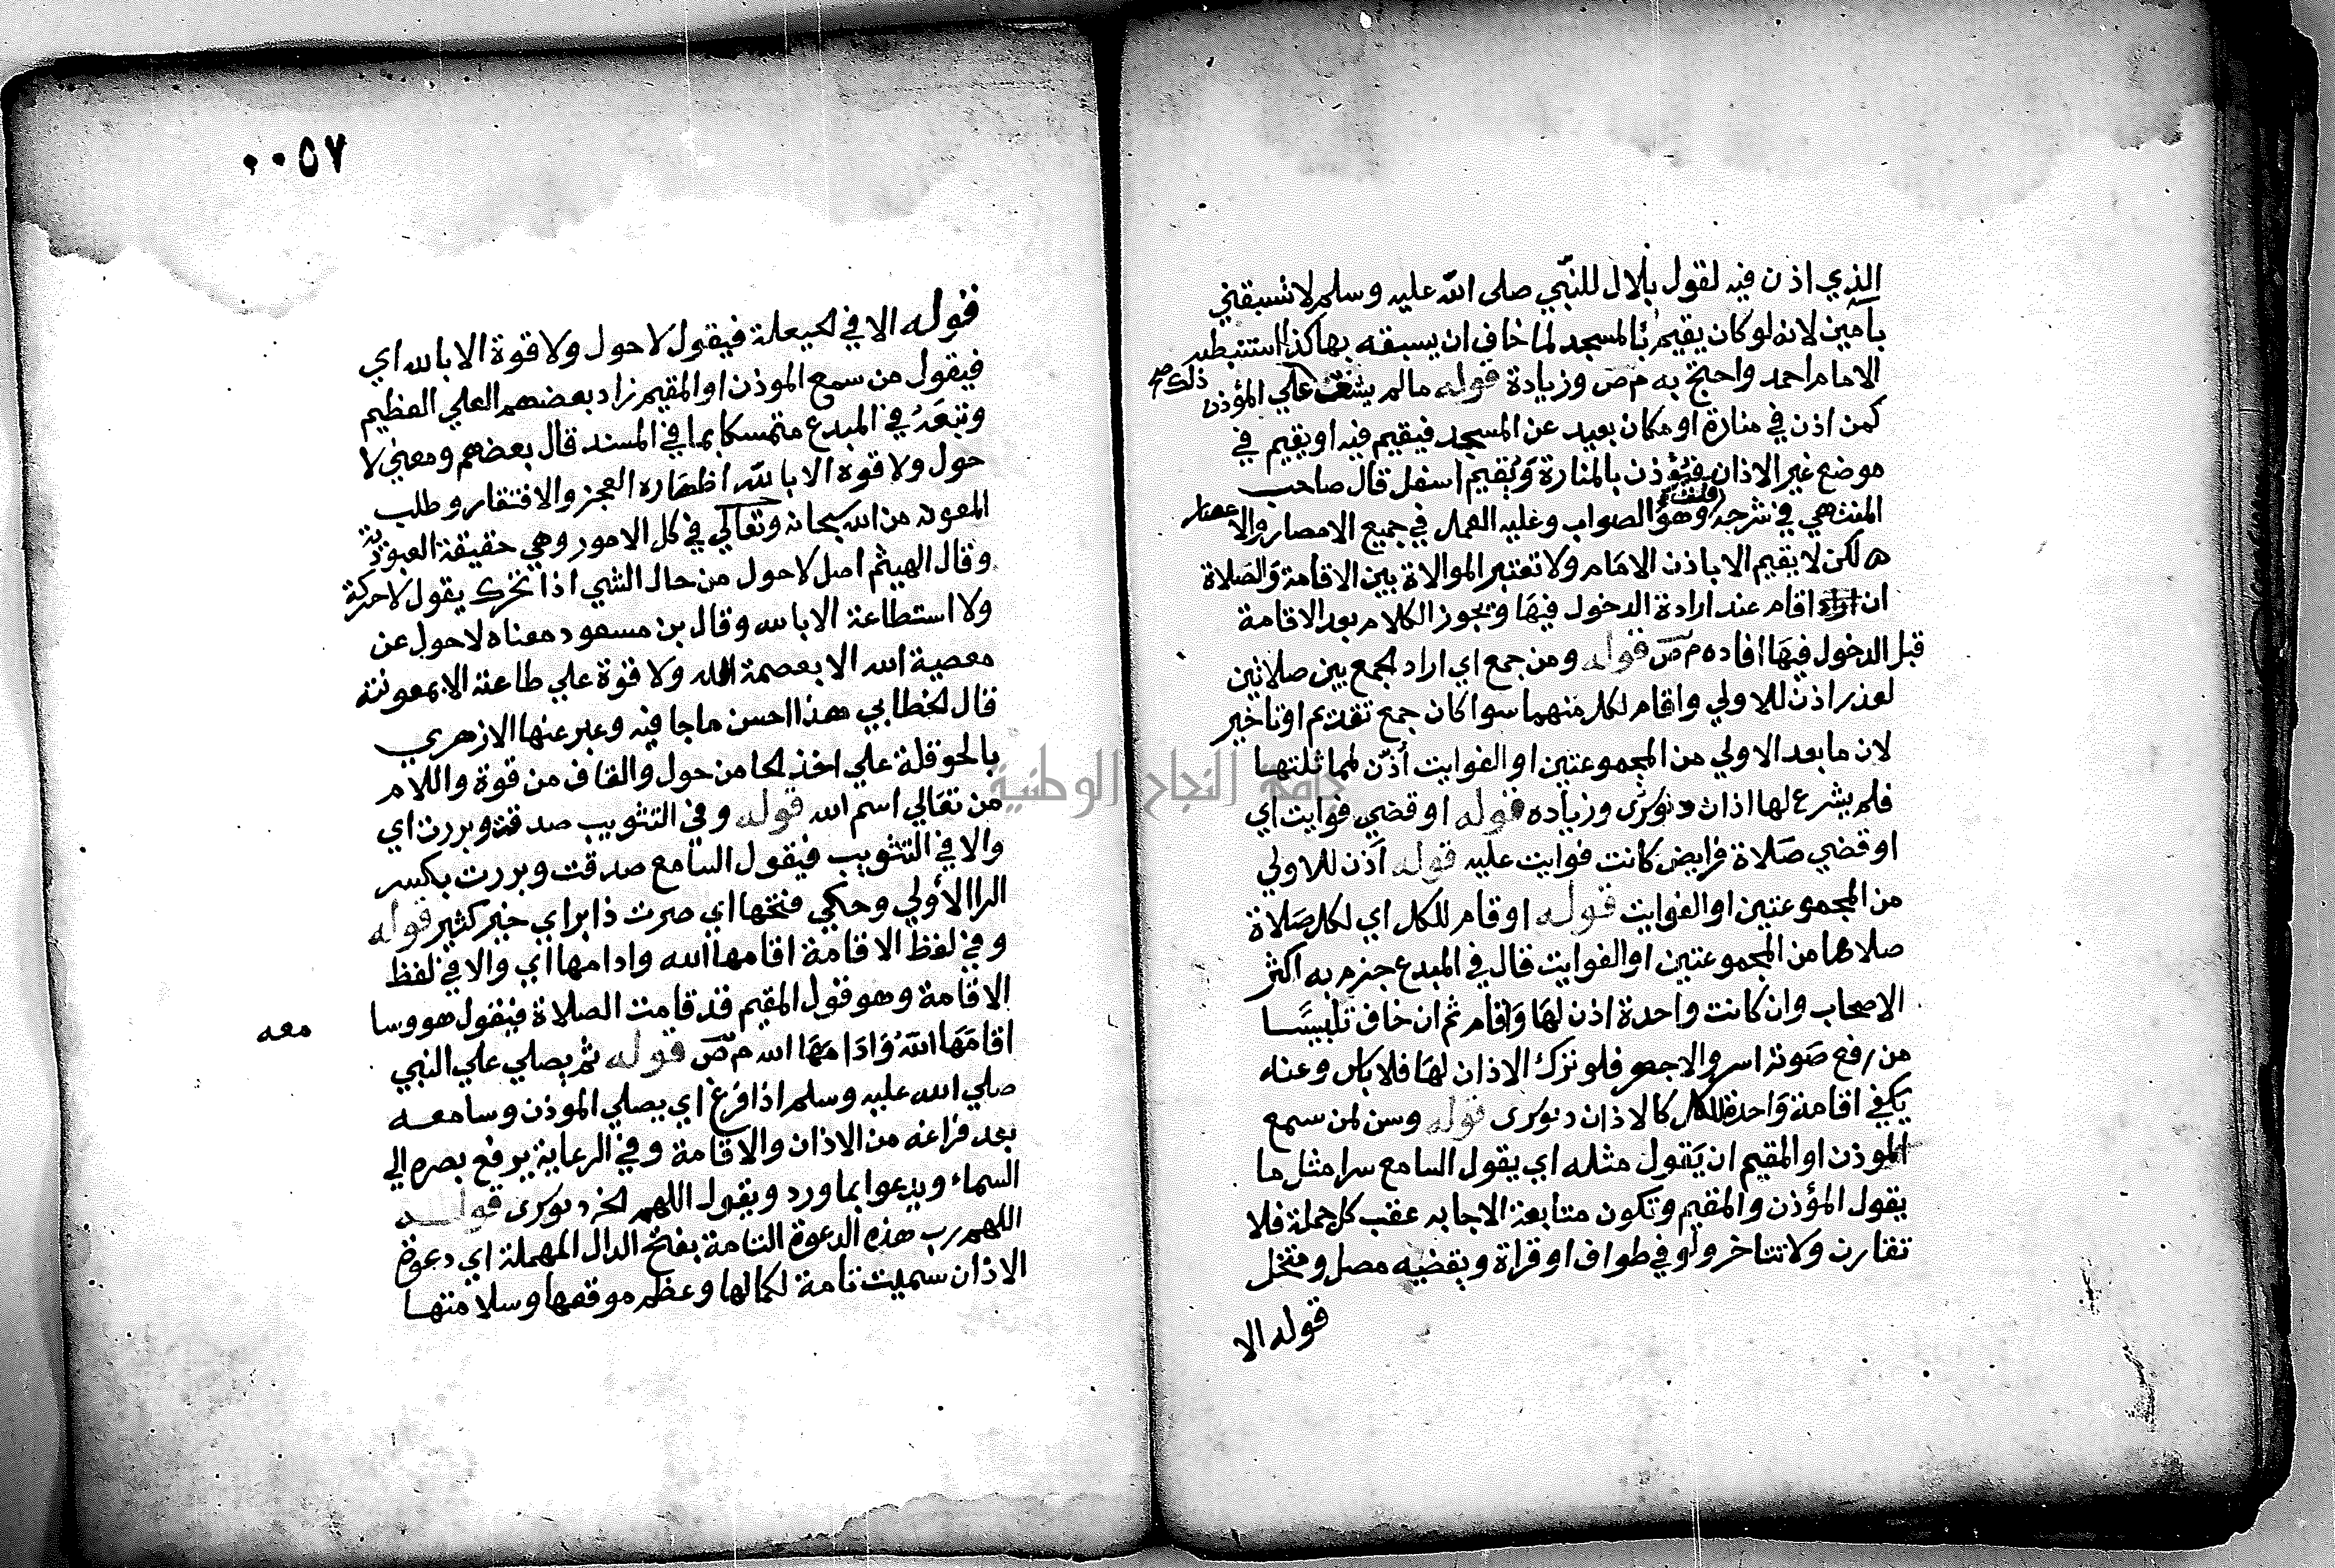 الذي اذن فيه لقول بلال للنبي صلى الله عليه وسلم لا تسبقني
بآمين لانه لو كان يقيم بالمسجد لما خاف ان يسبقه بها كذا استنبطه
الامام احمد واحتج به م ص وزيادة قوله ما لم يشق علي المؤذن
ذلك صح
كمن اذن في منارة او مكان بعيد عن المسجد فيقيم فيه او يقيم في
موضع غير الاذان فيؤذن بالمنارة ويقيم اسفل قال صاحب
المنتهي في شرحه قلت وهو الصواب وعليه العمل في جميع الامصار والاعصار
ه لكن لا يقيم الا باذن الامام ولا تعتبر الموالاة بين الاقامة والصلاة
ان اقام عند ارادة الدخول فيها ويجوز الكلام بعد الاقامة
قبل الدخول فيها افاده م ص قوله ومن جمع اي اراد الجمع بين صلاتين
لعذر اذن للاولي واقام لكل منهما سوا كان جمع تقديم او تاخير
لان ما بعد الاولي من المجموعتين او الفوايت أذن لمماثلتها
فلم يشرع لها اذان دنوشرى وزياده قوله او قضي فوايت اي
او قضي صلاة فرايض كانت فوايت عليه قوله اذن للاولي
من المجموعتين او الفوايت قوله او قام للكل اي لكل صلاة
صلاها من المجموعتين او الفوايت قال في المبدع جزم به اكثر
الاصحاب وان كانت واحدة اذن لها واقام ثم ان خاف تلبيسا
من رفع صوته اسر والا جهر فلو ترك الاذان لها فلا باس وعنه
يكفي اقامة واحدة للكل كالاذان دنوشرى قوله وسن لمن سمع
الموذن او المقيم ان يقول مثله اي يقول السامع سرا مثل ما
يقول المؤذن والمقيم وتكون متابعة الاجابه عقب كل جملة فلا
تقارن ولا تتاخر ولو في طواف او قراة ويقضيه مصل ومتخل
قوله الا
٠٠٥٧
قوله الا في الحيعلة فيقول لا حول ولا قوة الا بالله اي
فيقول من سمع الموذن او المقيم زاد بعضهم العلي العظيم
وتبعه في المبدع متمسكا بما في المسند قال بعضهم ومعني لا
حول ولا قوة الا بالله اظهاره العجز والافتقار وطلب
المعونه من الله سبحانه وتعالي في كل الامور وهي حقيقة العبودية
وقال الهيثم اصل لا حول من حال الشي اذا تحرك يقول لا حركة
ولا استطاعة الا بالله وقال بن مسعود معناه لا حول عن
معصية الله الا بعصمة الله ولا قوة علي طاعته الا بمعونته
قال الخطابي هذا احسن ما جا فيه وعبر عنها الازهري
بالحوقلة علي اخذ الحا من حول والقاف من قوة واللام
من تعالي اسم الله قوله وفي التثويب صدقت وبررت اي
والا في التثويب فيقول السامع صدقت وبررت بكسر
الرا الأولي وحكي فتحها اي صرت ذا بر اي خير كثير قوله
وفي لفظ الاقامة اقامها الله وادامها اي والا في لفظ
الاقامة وهو قول المقيم قد قامت الصلاة فيقول هو وسا
معه
اقامها الله وادامها الله م ص قوله ثم يصلي علي النبي
صلي الله عليه وسلم اذا فرغ اي يصلي الموذن وسامعه
بعد فراغه من الاذان والاقامة وفي الرعاية يرفع بصره الي
السماء ويدعوا بما ورد ويقول اللهم الخ دنوشرى قوله
اللهم رب هذه الدعوة التامة بفتح الدال المهملة اي دعوة
الاذان سميت تامة لكمالها وعظم موقعها وسلامتها
جامعة النجاح الوطنية